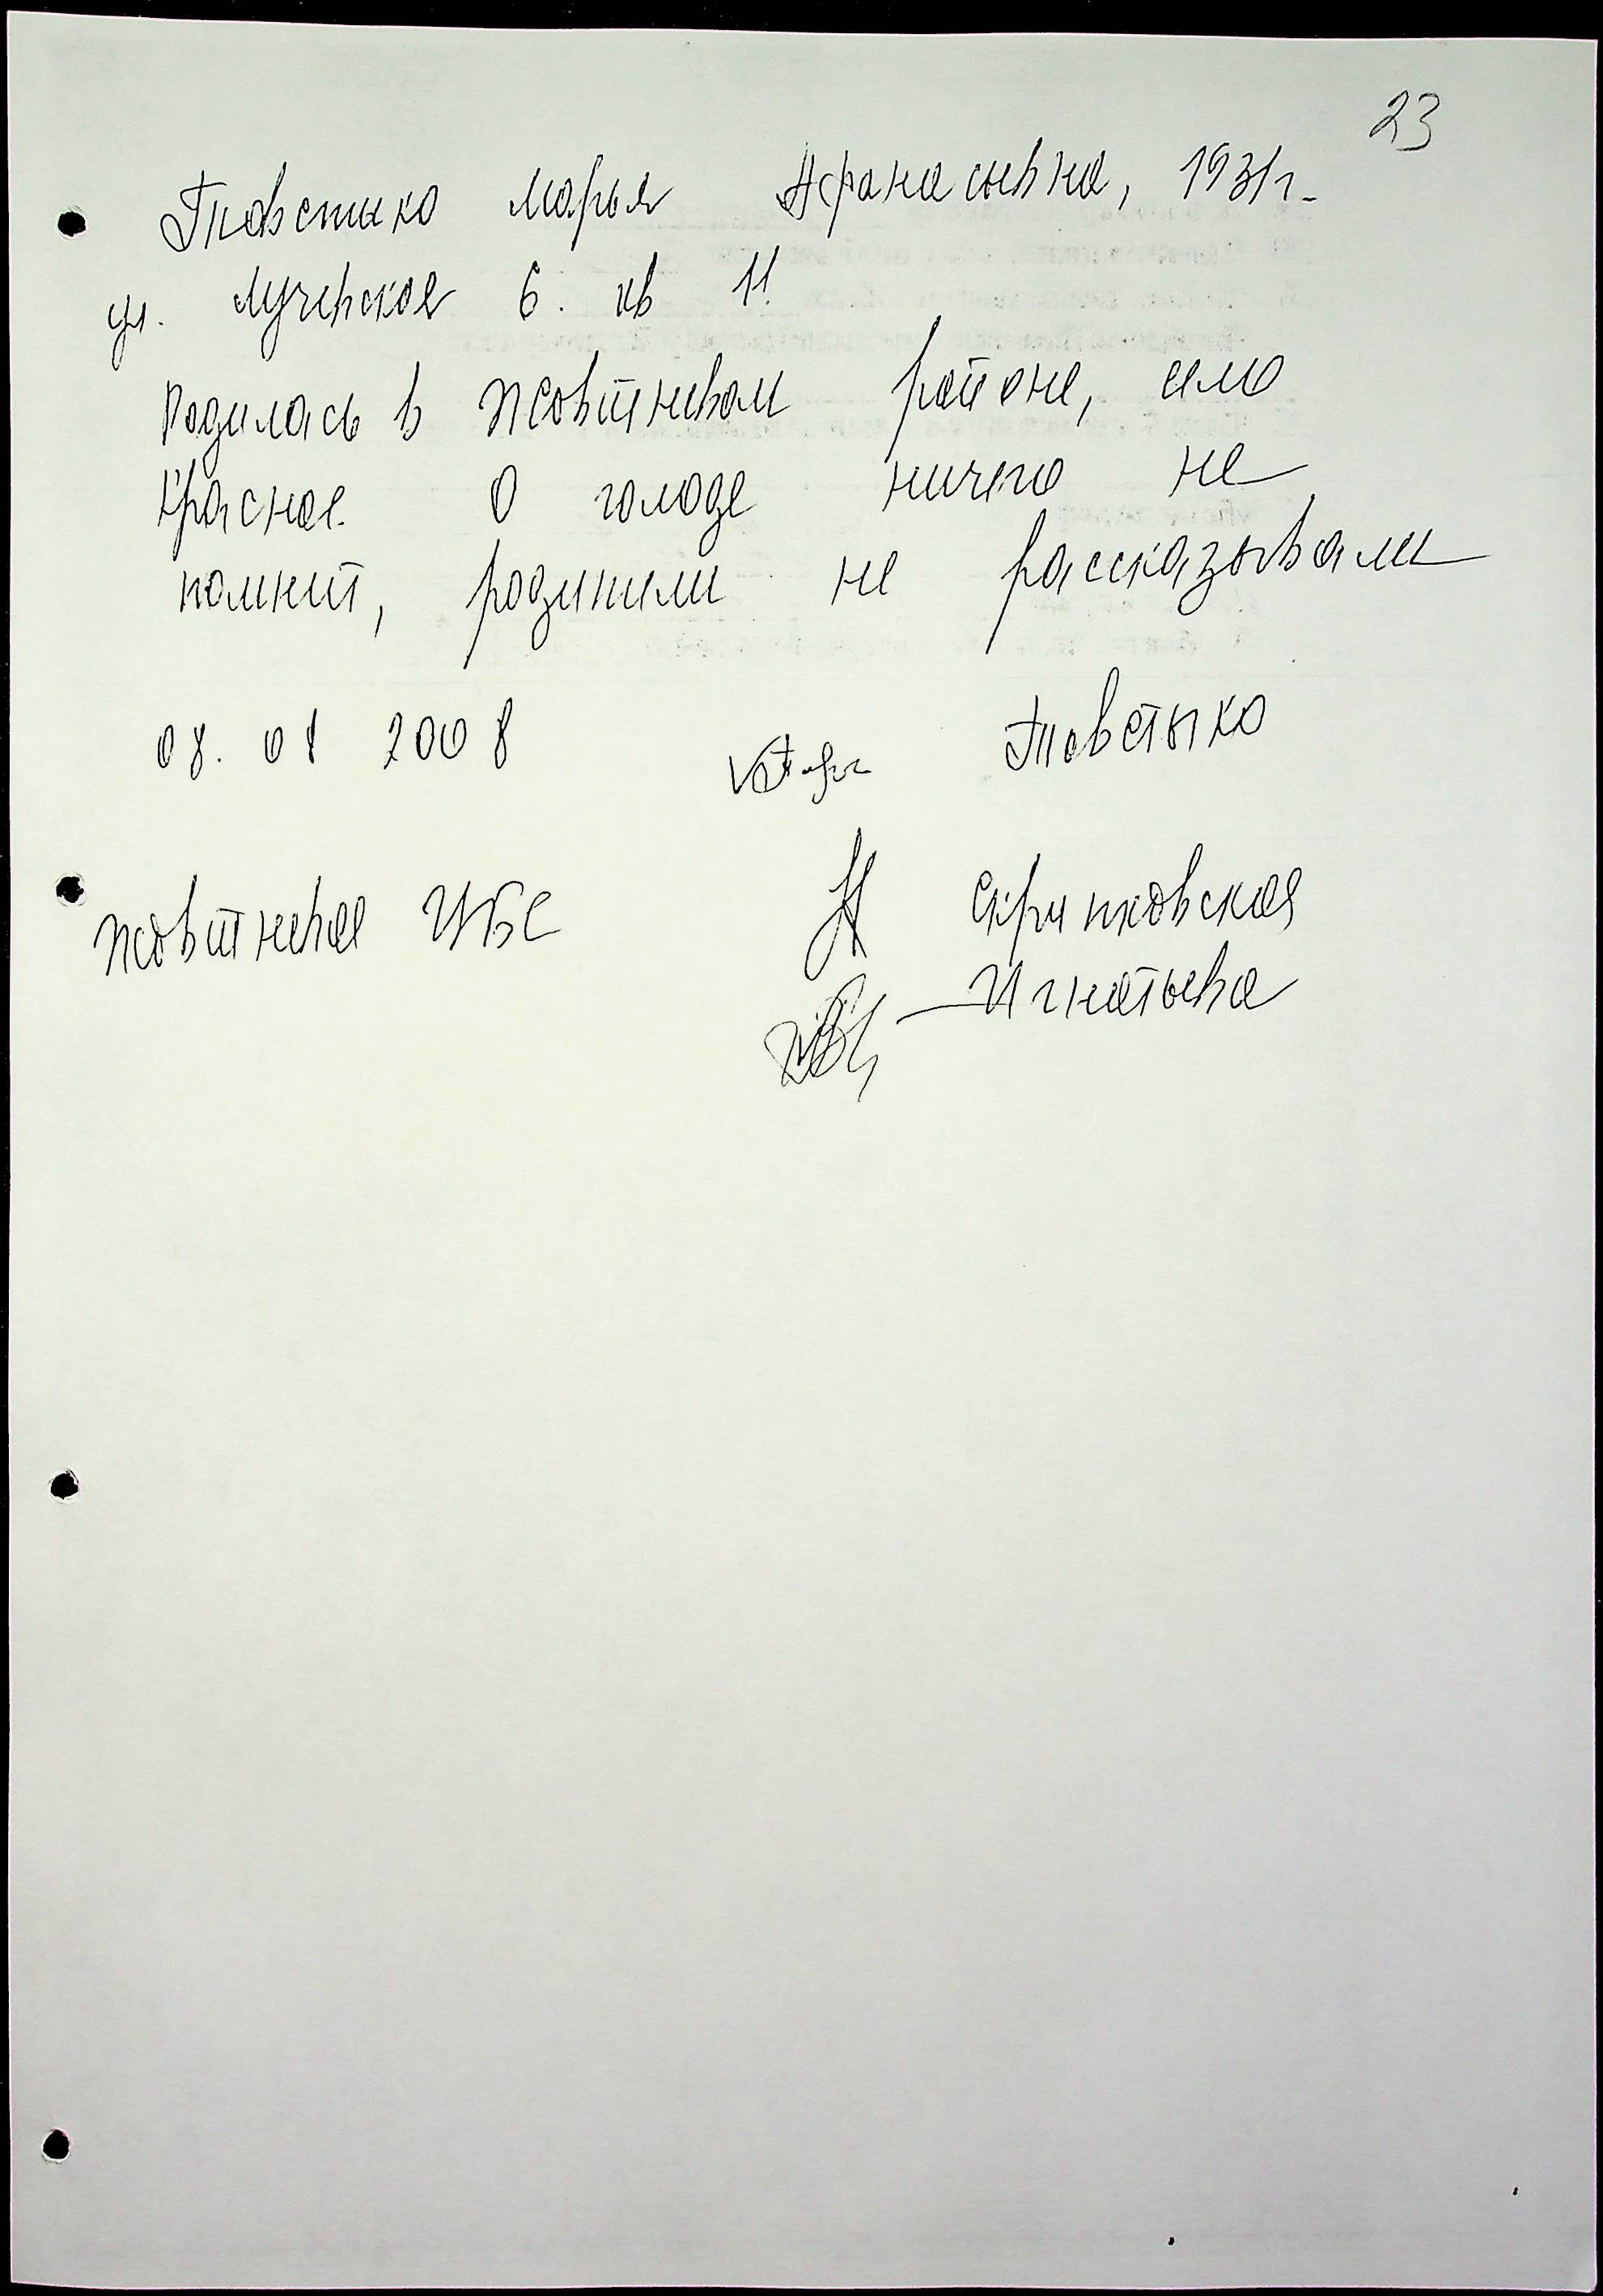 23
Товстыко Марья Афанасьевна, 1931г.
ул. Лучевская 6. кв 11.
Родилась в Жовтневом районе, село
Красное. О голоде ничего не
помнит, родители не рассказывали
08. 08 2008 Товстыко
Жовтневая ЦБС Скрипковская
Игнатьева